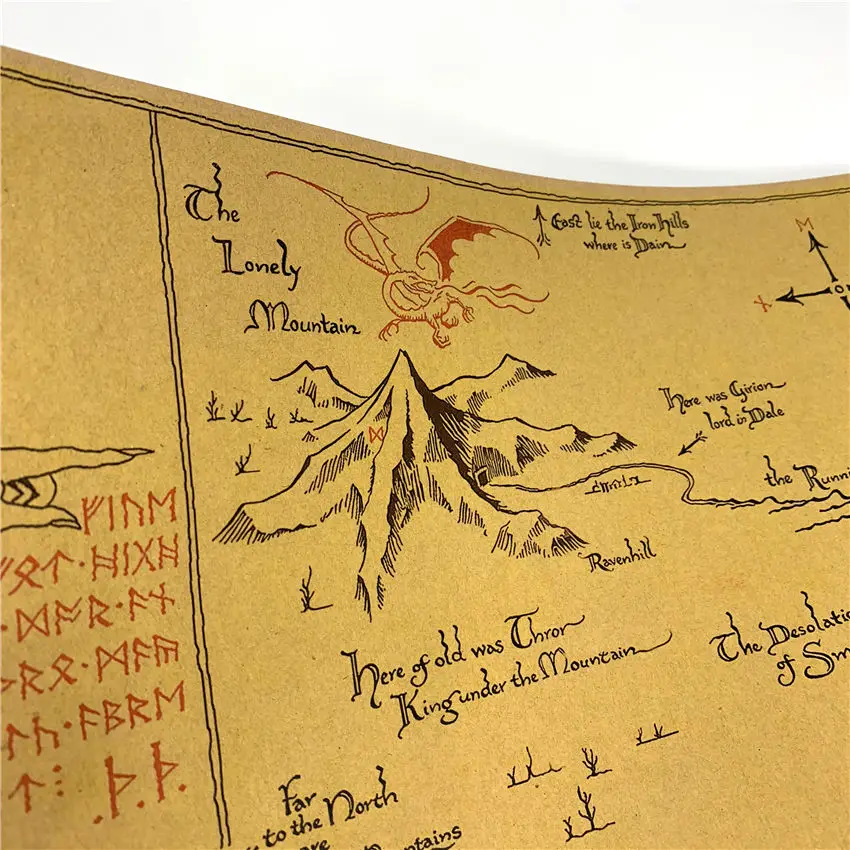 The
Lonely
Mountain
East lie the Iron Hills
where is Dain
Here was Girion
lord in Dale
the Runni
Ravenhill
Here of old was Thror
King under the Mountain
The Desolatio
of Sm
Far
to the North
are
ountains
ᛞ
ᚠᛁᚢᛖ
ᚩᛏ·ᚻᛁᚷᚻ
·ᛞᚩᚱ·ᚪᚾ
ᚱᛟ·ᛗᚪᚣ
·ᚪᛒᚱᛖ
ᛏ⁝ .ᚦ.ᚦ.